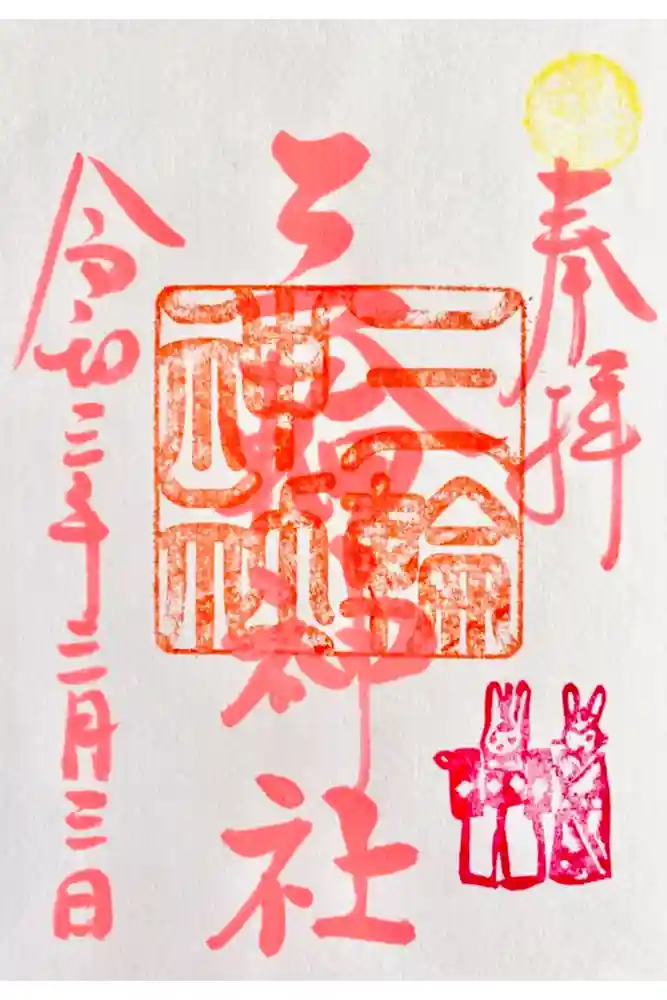 奉拝
三輪神社
三輪神社
令和三年二月三日